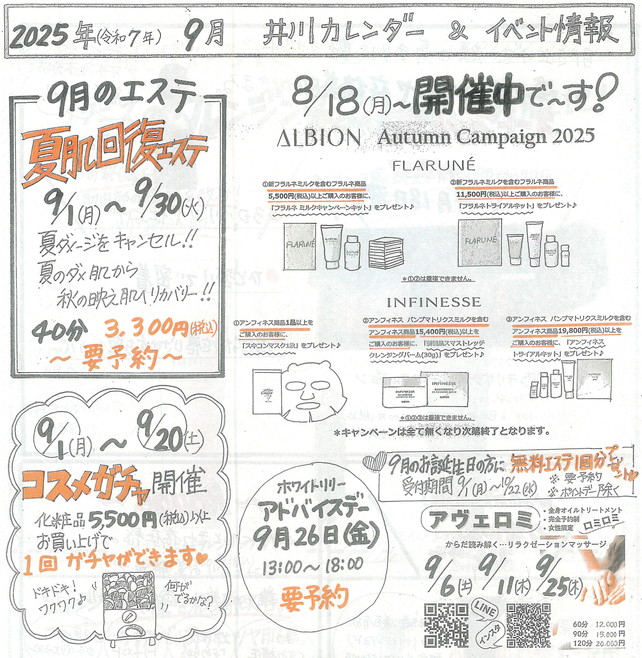 2025年(令和7年) 9月 井川カレンダー & イベント情報
9月のエステ
夏肌回復エステ
9/1(月)〜9/30(火)
夏ダメージをキャンセル!!
夏のダメ肌から
秋の映え肌へリカバリー!!
40分 3,300円(税込)
〜要予約〜
8/18(月)〜開催中で〜す!
ALBION Autumn Campaign 2025
FLARUNÉ
①新フラルネミルクを含むフラルネ商品
5,500円(税込)以上ご購入のお客様に、
「フラルネ ミルクキャンペーンキット」をプレゼント♪
②新フラルネミルクを含むフラルネ商品
11,500円(税込)以上ご購入のお客様に、
「フラルネトライアルキット」をプレゼント♪
FLARUNÉ
FLARUNÉ
*①②は重複できません。
INFINESSE
①アンフィネス商品1品以上を
ご購入のお客様に、
をプレゼント♪
②アンフィネス パンプマトリクスミルクを含む
アンフィネス商品15,400円(税込)以上を
ご購入のお客様に、
クレンジングバーム(30g)」をプレゼント♪
③アンフィネス パンプマトリクスミルクを含む
アンフィネス商品19,800円(税込)以上を
ご購入のお客様に、「アンフィネス
トライアルキット」をプレゼント♪
*①②③は重複できません。
*キャンペーンは全て無くなり次第終了となります。
9/1(月)〜9/20(土)
コスメガチャ開催
化粧品5,500円(税込)以上
お買い上げで
1回ガチャができます♥
ドキドキ!
ワクワク♪
何が
でるかな?
ホワイトリリー
アドバイスデー
9月26日(金)
13:00〜18:00
要予約
9月のお誕生日の方に無料エステ1回分プレゼント
受付期間9/1(月)〜10/22(水)
※要予約
※ポイントデー除く
アヴェロミ
・全身オイルトリートメント
・完全予約制
・女性限定
ロミロミ
からだ読み解く…リラクゼーションマッサージ
9/6(土) 9/11(木) 9/25(木)
LINE
インスタ
60分 12,000円
90分 15,000円
120分 20,000円